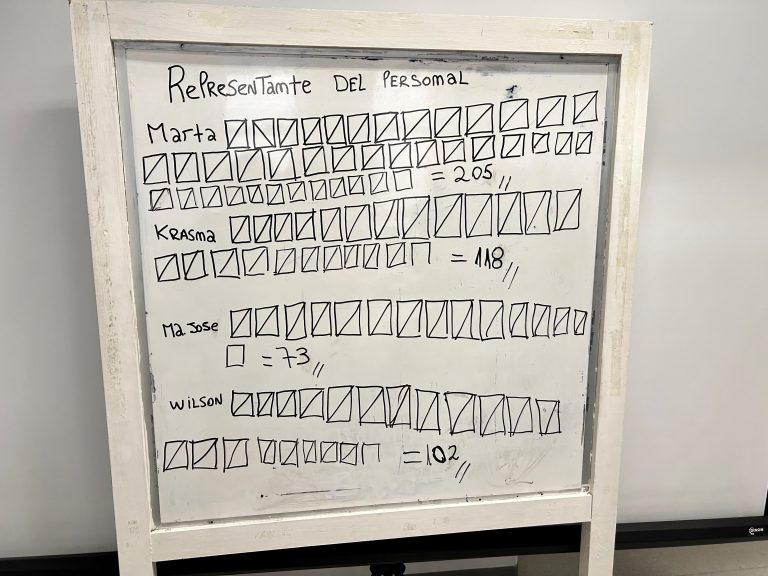 RePResenTamte DEL PERSOMAL
Marta
= 205
KRASMA
= 118
MaJOSE
= 73
WILSON
= 102